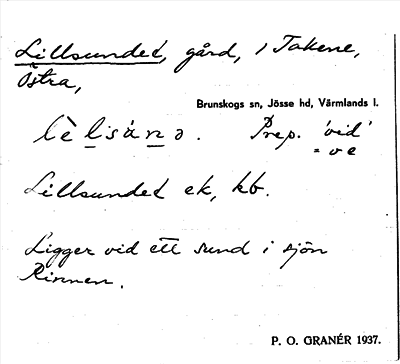 Lillsundet, gård, i Takene,
Östra,
Brunskogs sn, Jösse hd, Värmlands l.
lè l̲sȧn̲ə. Prep. 'vid'
= ve
Lillsundet ek, kb.
Ligger vid ett sund i sjön
Rinnen.
P. O. GRANÉR 1937.